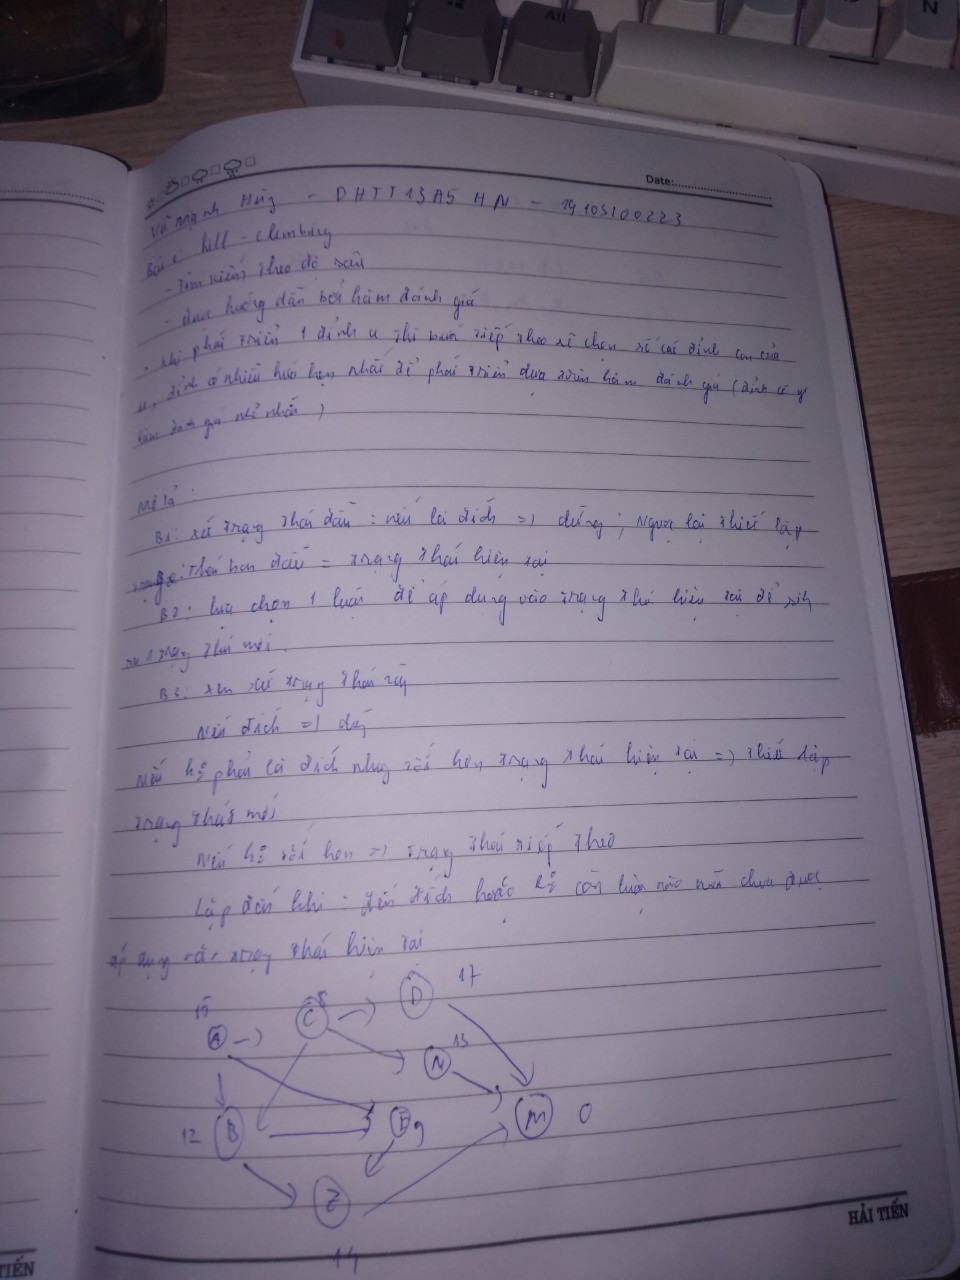 All
N
Date:
Vũ Mạnh Hùng - DHTT13A5 HN - 19103100223
hill - climbing
- Tìm kiếm theo độ sâu
- được hướng dẫn bởi hàm đánh giá
. khi phát triển 1 đỉnh u thì bước tiếp theo sẽ chọn số các đỉnh con của
u, đỉnh có nhiều hứa hẹn nhất để phát triển dựa trên hàm đánh giá (đỉnh có
hàm đánh giá nhỏ nhất)
Mô tả:
B1: xét trạng thái đầu: nếu là đích => dừng; Ngược lại thiết lập
thái ban đầu = trạng thái hiện tại
B2: lựa chọn 1 luật để áp dụng vào trạng thái hiện tại để sinh
ra 1 trạng thái mới.
B3: xem xét trạng thái này
Nếu đích => dừng
Nếu phải là đích nhưng tốt hơn trạng thái hiện tại => thiết lập
trạng thái mới
Nếu tốt hơn => trạng thái tiếp theo
Lặp đến khi: đến đích hoặc còn luật nào nữa chưa được
áp dụng vào trạng thái hiện tại
15
A
C
8
D
17
N
13
12
B
9
M
0
Z
14
HẢI TIẾN
TIẾN